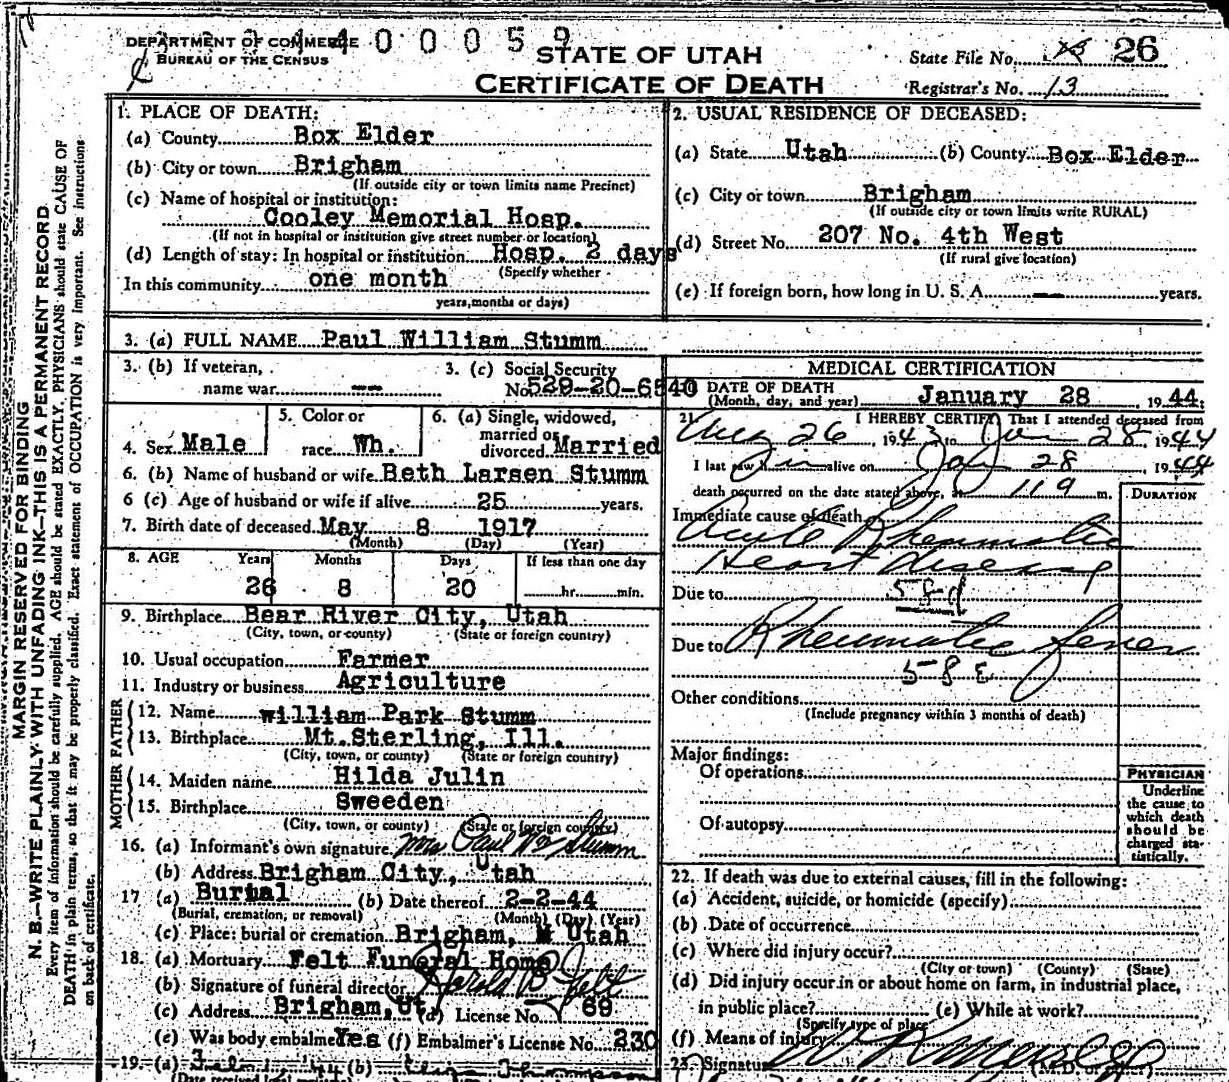 DEPARTMENT OF COMMERCE
BUREAU OF THE CENSUS
4 4 0 0 0 5 9
STATE OF UTAH
CERTIFICATE OF DEATH
State File No. 26
Registrar's No. 13
MARGIN RESERVED FOR BINDING
N. B.—WRITE PLAINLY WITH UNFADING INK—THIS IS A PERMANENT RECORD
Every item of information should be carefully supplied. AGE should be stated EXACTLY. PHYSICIANS should state CAUSE OF
DEATH in plain terms, so that it may be properly classified. Exact statement of OCCUPATION is very important. See instructions
on back of certificate.
1. PLACE OF DEATH:
(a) County Box Elder
(b) City or town Brigham
(If outside city or town limits name Precinct)
(c) Name of hospital or institution:
Cooley Memorial Hosp.
(If not in hospital or institution give street number or location)
(d) Length of stay: In hospital or institution Hosp. 2 days
(Specify whether
In this community one month
years, months or days)
2. USUAL RESIDENCE OF DECEASED:
(a) State Utah (b) County Box Elder
(c) City or town Brigham
(If outside city or town limits write RURAL)
(d) Street No. 207 No. 4th West
(If rural give location)
(e) If foreign born, how long in U. S. A. — years.
3. (a) FULL NAME Paul William Stumm
3. (b) If veteran,
name war --
3. (c) Social Security
No. 529-20-6540
4. Sex Male
5. Color or
race Wh.
6. (a) Single, widowed,
married or
divorced Married
6. (b) Name of husband or wife Beth Larsen Stumm
6 (c) Age of husband or wife if alive 25 years.
7. Birth date of deceased May 8 1917
(Month) (Day) (Year)
8. AGE Years Months Days If less than one day
26 8 20 hr. min.
9. Birthplace Bear River City, Utah
(City, town, or county) (State or foreign country)
10. Usual occupation Farmer
11. Industry or business Agriculture
FATHER
12. Name william Park Stumm
13. Birthplace Mt.Sterling, Ill.
(City, town, or county) (State or foreign country)
MOTHER
14. Maiden name Hilda Julin
15. Birthplace Sweeden
(City, town, or county) (State or foreign country)
16. (a) Informant's own signature Mrs Paul Wm Stumm
(b) Address Brigham City, Utah
17 (a) Burial (b) Date thereof 2-2-44
(Burial, cremation, or removal) (Month) (Day) (Year)
(c) Place: burial or cremation Brigham, Utah
18. (a) Mortuary Felt Funeral Home
(b) Signature of funeral director Harold B Felt
(c) Address Brigham, Ut. (d) License No. 69
(e) Was body embalmed Yes (f) Embalmer's License No. 230
19. (a) (b) Thompson
(Date received local
MEDICAL CERTIFICATION
20. DATE OF DEATH
(Month, day, and year) January 28 1944
21. I HEREBY CERTIFY, That I attended deceased from
Aug 26, 1943 to Jan 28 1944
I last saw him alive on Jan 28, 1944
death occurred on the date stated above, at 119 m.
DURATION
Immediate cause of death
Acute Rheumatic
Heart Disease
Due to
58d
Due to Rheumatic fever
58E
Other conditions
(Include pregnancy within 3 months of death)
Major findings:
Of operations
Of autopsy
PHYSICIAN
Underline
the cause to
which death
should be
charged sta-
tistically.
22. If death was due to external causes, fill in the following:
(a) Accident, suicide, or homicide (specify)
(b) Date of occurrence
(c) Where did injury occur?
(City or town) (County) (State)
(d) Did injury occur in or about home on farm, in industrial place,
in public place? (e) While at work?
(Specify type of place)
(f) Means of injury
23. Signature
(M.D. or other)